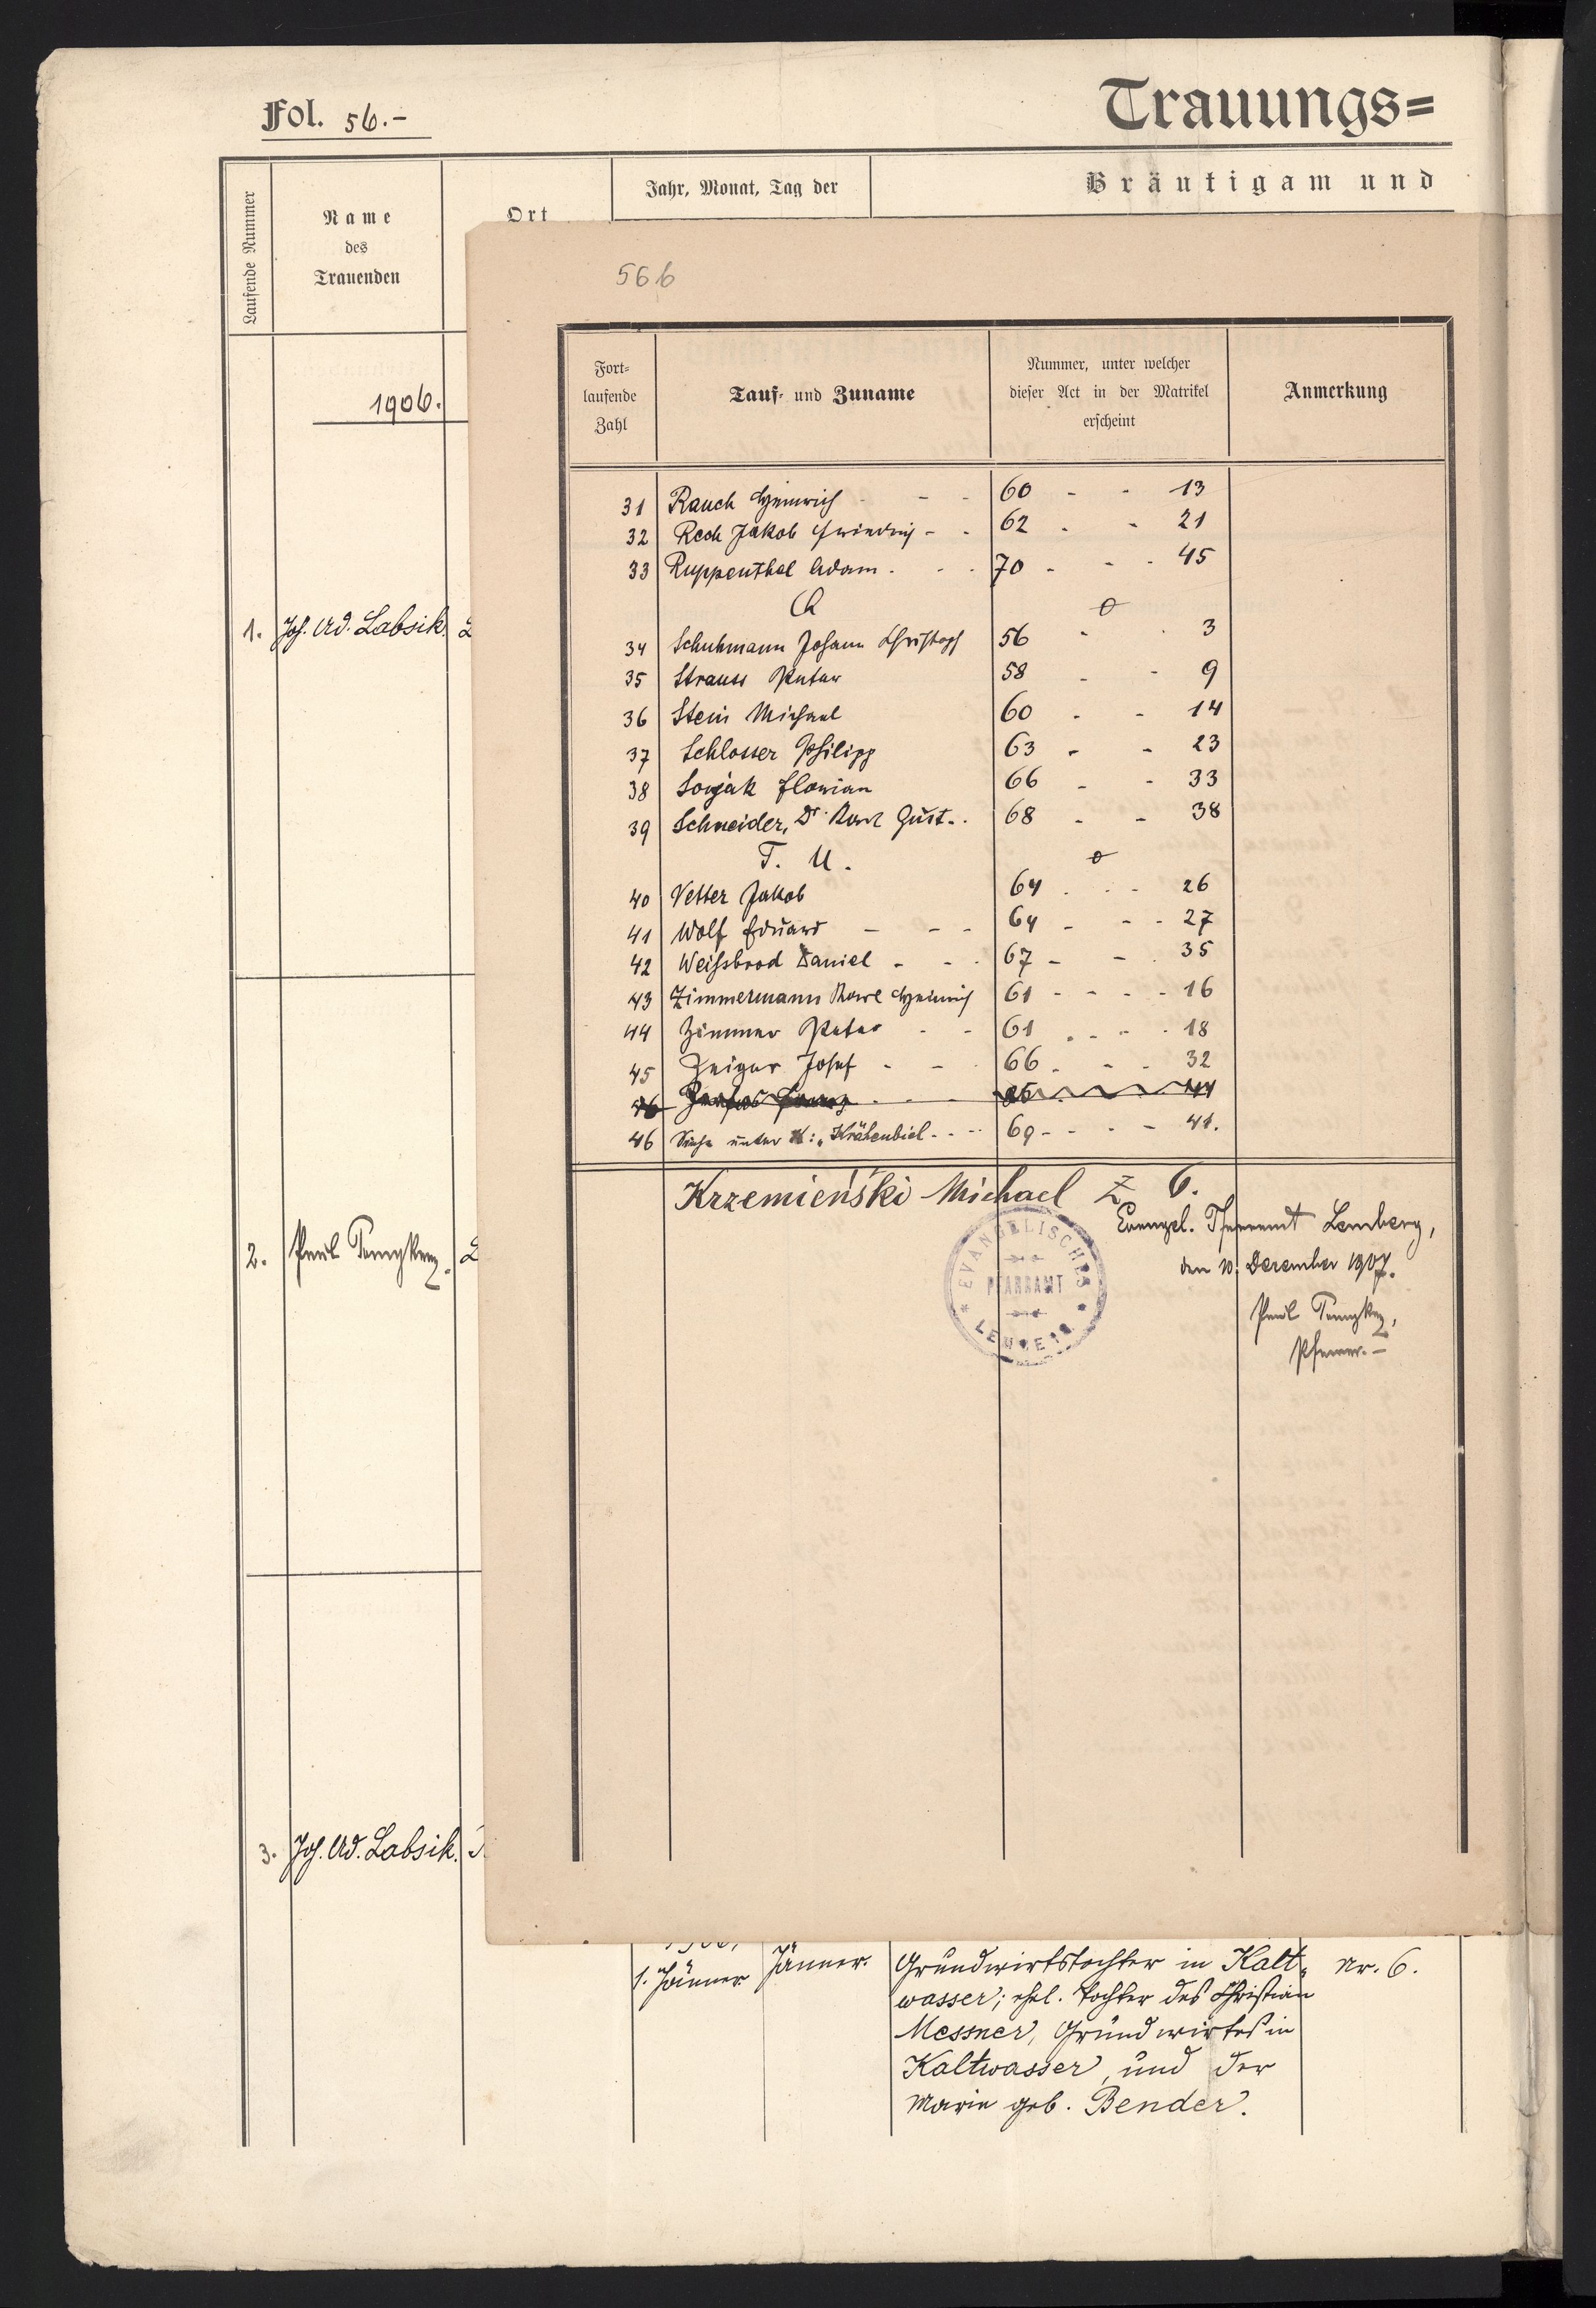 Fol. 56.-
Trauungs=
Laufende Nummer
Name
des
Trauenden
Ort
Jahr, Monat, Tag der
Bräutigam und
1906.
1. Joh. Ad. Labsik.
2. Paul
3. Joh. Ad. Labsik.
56b
Fort-
laufende
Zahl
Tauf- und Zuname
Nummer, unter welcher
dieser Act in der Matrikel
erscheint
Anmerkung
31 Rauch Heinrich - - 60 - - 13
32 Rech Jakob Friedrich - - 62 - - 21
33 Ruppenthal Adam - - - 70 - - - 45
34 Schuhmann Johann Christoph 56 - - 3
35 Strauss Peter 58 - - 9
36 Stein Michael 60 - - 14
37 Schlosser Philipp 63 - - 23
38 Florian 66 - - 33
39 Schneider, Dr. Karl Gust. 68 - - 38
T. U.
40 Vetter Jakob 64 - - - 26
41 Wolf Eduard - - - 64 - - - 27
42 Weissbrod Daniel - - - 67 - - - 35
43 Zimmermann Karl Heinrich 61 - - - - 16
44 Zimmer Peter - - 61 - - - - 18
45 Zeiger Josef - - 66 - - - 32
46 Siehe unter K: "Krähenbiel - - - 69 - - - - 41.
Krzemieński Michael Z 6.
Evangel. Pfarramt Lemberg,
den 10. Dezember 1907.
Paul
Pfarrer. -
EVANGELISCHES
PFARRAMT
LEMBERG
1. Jänner
Jänner.
Grundwirtstochter in Kalt-
wasser; ehel. Tochter des Christian
Messner, Grundwirtes in
Kaltwasser, und der
Marie geb. Bender.
Nr. 6.